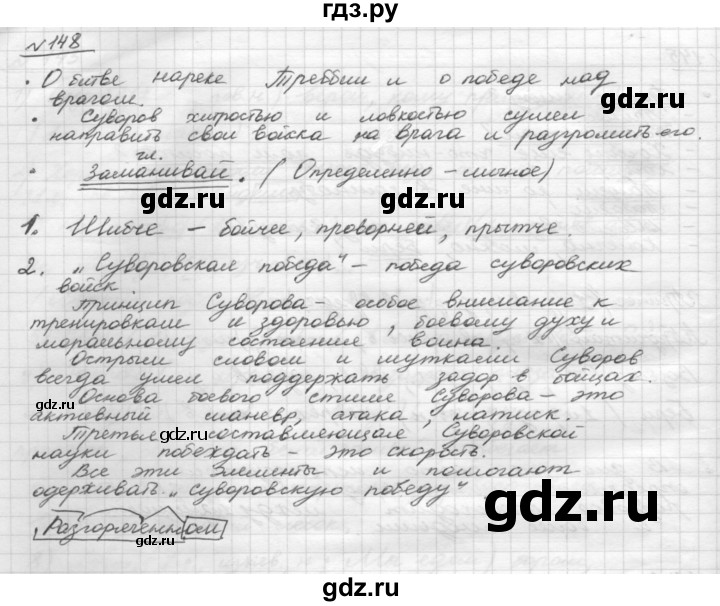 гдз.ру
№148
• О битве на реке Треббии и о победе над
врагом.
• Суворов хитростью и ловкостью сумел
направить свои войска на врага и разгромить его.
гл.
• Заманивай. (Определенно – личное)
gdz.ru
gdz.ru
gdz.ru
1. Шибче – бойчее, проворней, прытче.
2. „Суворовская победа" – победа суворовских
войск.
Принцип Суворова – особое внимание к
тренировкам и здоровью, боевому духу и
моральному состоянию воина.
Острым словом и шутками Суворов
всегда умел поддержать задор в бойцах.
Основа боевого стиля Суворова – это
активный маневр, атака, натиск.
gdz.ru
gdz.ru
gdz.ru
Третья составляющая Суворовской
науки побеждать – это скорость.
Все эти элементы и помогают
одерживать „суворовскую победу"
gdz.ru
gdz.ru
Разгоряченном
gdz.ru
gdz.ru